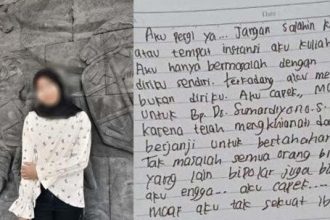 Date :
Aku pergi ya... Jangan salahin k
atau tempat instansi aku kuliah
Aku hanya bermasalah dengan
diriku sendiri. terkadang aku me
bukan diriku. Aku capek, M
untuk Bp. Ps. Sumardiyono-S
karena telah mengkhianati da
berjanji untuk bertahan
Tak masalah semua orang bi
yang lain bipolar juga bi
aku engga... aku capek...
maaf aku tak sekuat i